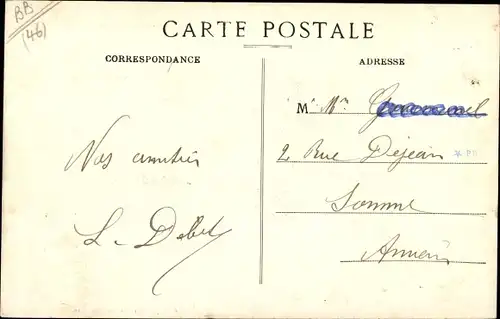 BB
(46)
CARTE POSTALE
CORRESPONDANCE
ADRESSE
M
2 Rue Dejean
Somme
Amiens
Nos amitiés
L. Debet